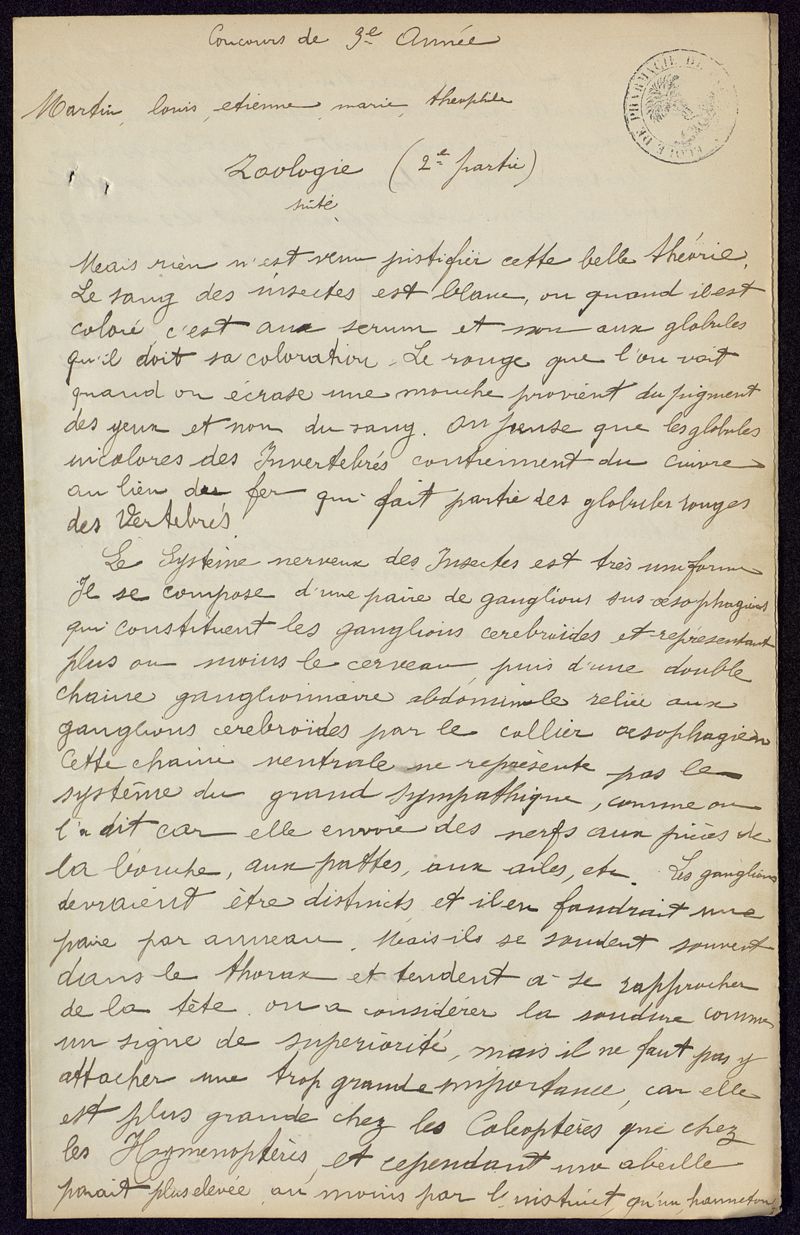 Concours de 3e Année
ECOLE DE PHARMACIE DE
Martin, louis, etienne, marie, théophile
Zoologie (2e partie)
suite
Mais rien n'est venu justifier cette belle théorie.
Le sang des insectes est blanc, ou quand il est
coloré, c'est au serum et non aux globules
qu'il doit sa coloration. Le rouge que l'on voit
quand on écrase une mouche provient du pigment
des yeux et non du sang. On pense que les globules
incolores des Invertebrés contiennent du cuivre
au lieu du fer qui fait partie des globules rouges
des Vertebrés.
Le Système nerveux des Insectes est très uniforme
Il se compose d'une paire de ganglions sus oesophagiens
qui constituent les ganglions cerebroïdes et représentant
plus ou moins le cerveau puis d'une double
chaine ganglionnaire abdominale reliée aux
ganglions cerebroïdes par le collier oesophagien
Cette chaine ventrale ne représente pas le
système du grand sympathique, comme on
l'a dit car elle envoie des nerfs aux pièces de
la bouche, aux pattes, aux ailes, etc. Les ganglions
devraient être distincts et il en faudrait une
paire par anneau. Mais ils se soudent souvent
dans le thorax et tendent à se rapprocher
de la tête. on a considérer la soudure comme
un signe de superiorité, mais il ne faut pas y
attacher une trop grande importance, car elle
est plus grande chez les Coleoptères que chez
les Hymenoptères, et cependant une abeille
parait plus elevée, au moins par l'instinct, qu'un hanneton.